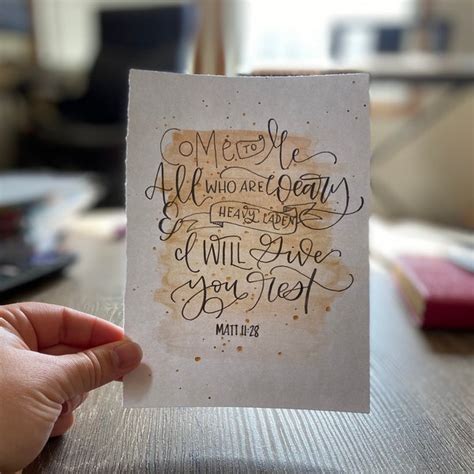 Come to Me
All WHO ARE Weary
& HEAVY LADEN
I WILL Give
you rest
MATT 11:28